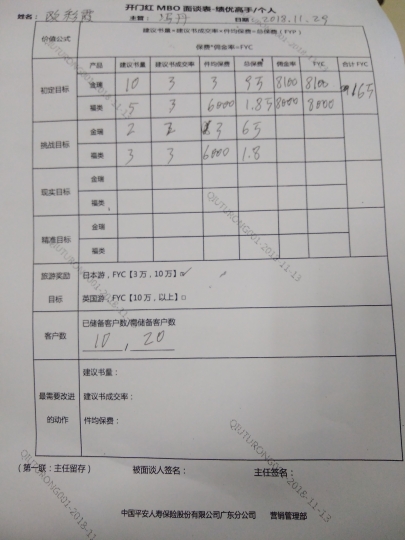 开门红 MBO 面谈表-绩优高手/个人
姓名： 主管： 日期：2018.11.29
价值公式 建议书量*建议书成交率*件均保费=总保费（FYP）
保费*佣金率=FYC
产品 建议书量 建议书成交率 件均保费 总保费 佣金率 FYC 合计 FYC
初定目标 金瑞 10 3 3 8100 8100
福类 5 3 6000 8000 8000
挑战目标 金瑞 2 2
福类 3 3 6000 1.8
现实目标 金瑞
福类
精准目标 金瑞
福类
旅游奖励 日本游，FYC【3 万，10 万】□✓
目标 英国游，FYC【10 万，以上】□
客户数 已储备客户数/需储备客户数
10 , 20
建议书量：
是需要改进 建议书成交率：
的动作 件均保费：
（第一联：主任留存） 被面谈人签名： 主任签名：
中国平安人寿保险股份有限公司广东分公司 营销管理部
QIUTURONG001-2018-11-13
QIUTURONG001-2018-11-13
QIUTURONG001-2018-11-13